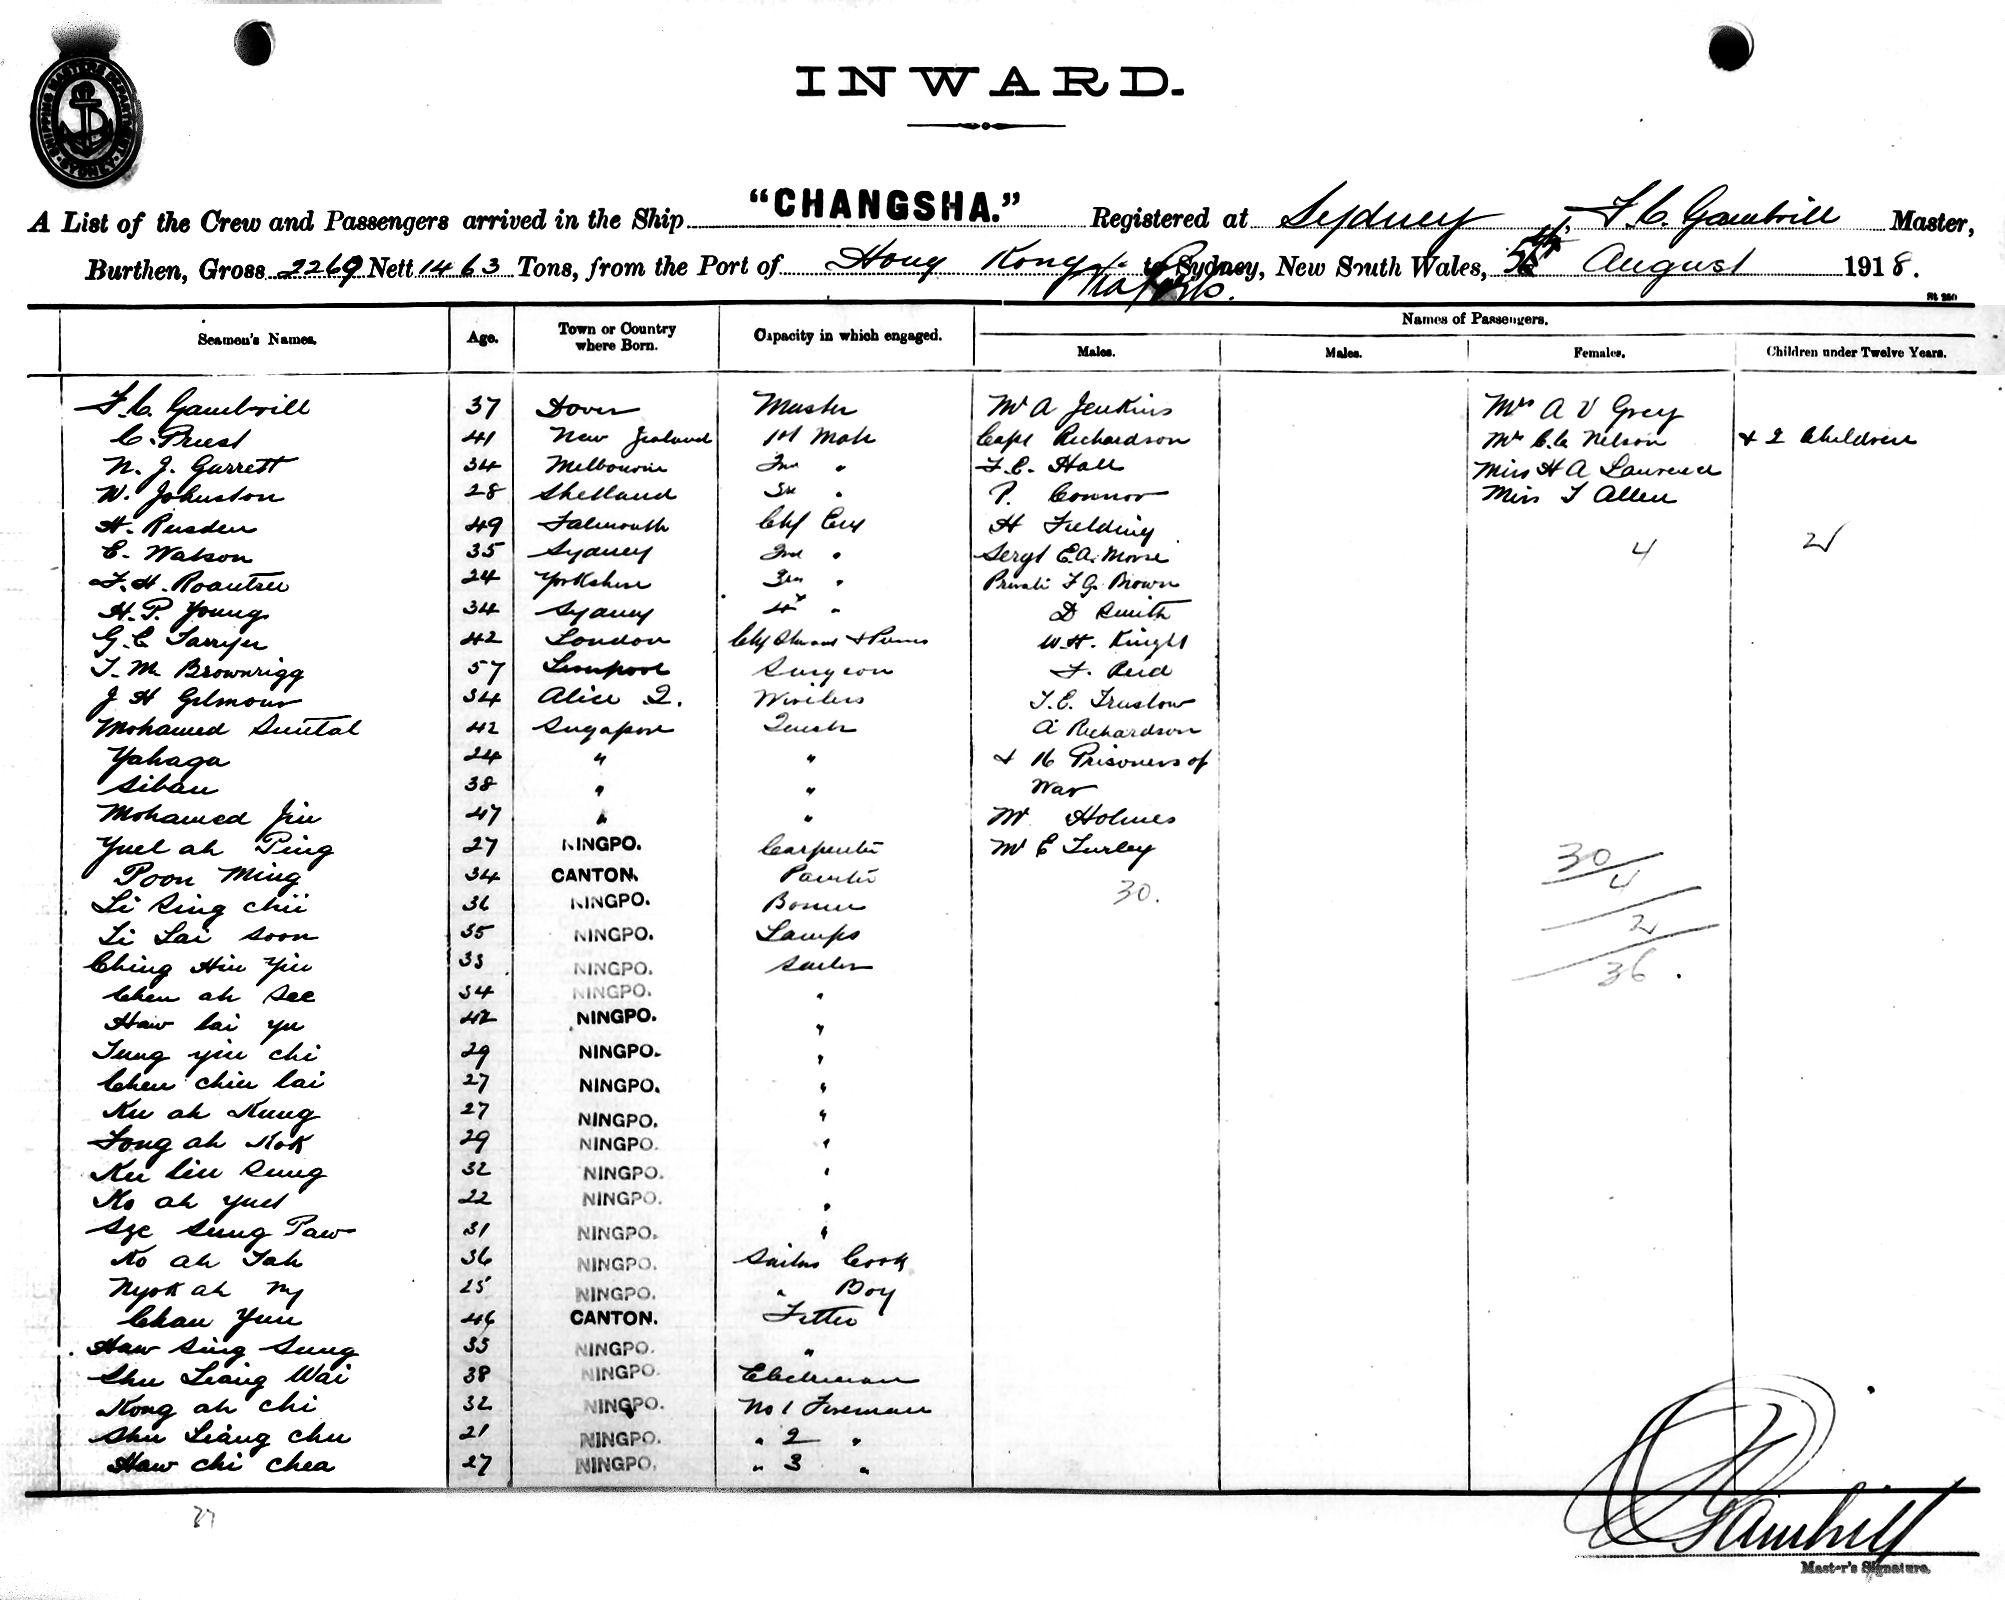 SHIPPING MASTERS DEPARTMENT
SYDNEY
INWARD.
A List of the Crew and Passengers arrived in the Ship "CHANGSHA." Registered at Sydney, F. C. Gambrill Master,
Burthen, Gross 2269 Nett 1463 Tons, from the Port of Hong Kong to Sydney, New South Wales, 5th August 1918.
via Ports.
Names of Passengers.
Seamen's Names. Age. Town or Country where Born. Capacity in which engaged. Males. Males. Females. Children under Twelve Years.
F. C. Gambrill 37 Dover Master Mr A Jenkins Mrs A V Grey
C. Priest 41 New Zealand 1st Mate Capt Richardson Mrs C. C. Nelson + 2 Children
N. J. Garrett 34 Melbourne 2nd " F. E. Hall Miss H A Laurence
W. Johnston 28 Shetland 3rd " P. Connor Miss T Allen
H. Rusden 49 Falmouth Chf Eng H Fielding
E. Watson 35 Sydney 2nd " Sergt E. A. Morse 4 2
F. H. 24 Yorkshire 3rd " Private F G. Brown
H. P. Young 34 Sydney 4th " D Smith
G. E. 42 London Chf Steward + Purser W. H. Knight
T. M. Brownrigg 57 Liverpool Surgeon F. Reid
J H Gilmour 34 Alice S. Wireless T. E. Truslow
Mohamed 42 Singapore A Richardson
Yahaga 24 " " + 16 Prisoners of
Siban 38 " " War
Mohamed Jin 47 " " Mr Holmes
Yuel ah Ping 27 NINGPO. Carpenter Mr E Turley
Poon Ming 34 CANTON. Painter 30. 30
Li Sing Chii 36 NINGPO. Bosun 4
Li Lai Soon 35 NINGPO. Lamps 2
Ching Hin Yin 33 NINGPO. Sailor 36.
Chen ah See 34 NINGPO. "
Haw lai yu 42 NINGPO. "
Tung yin chi 29 NINGPO. "
Chen chin lai 27 NINGPO. "
Ku ah Kung 27 NINGPO. "
Fong ah Kok 29 NINGPO. "
Ku lin Sung 32 NINGPO. "
Ko ah yuel 22 NINGPO. "
Sze Sung Paw 31 NINGPO. "
Ko ah Tah 36 NINGPO. Sailors Cook
Nyok ah ny 25 NINGPO. " Boy
Chan Yun 46 CANTON. Fitter
Haw Sing Sung 35 NINGPO. "
Shu Liang Wai 38 NINGPO.
Kong ah chi 32 NINGPO. No 1 Fireman
Shu Liang chu 21 NINGPO. " 2 "
Haw chi chea 27 NINGPO. " 3 "
37
Gambrill
Master's Signature.